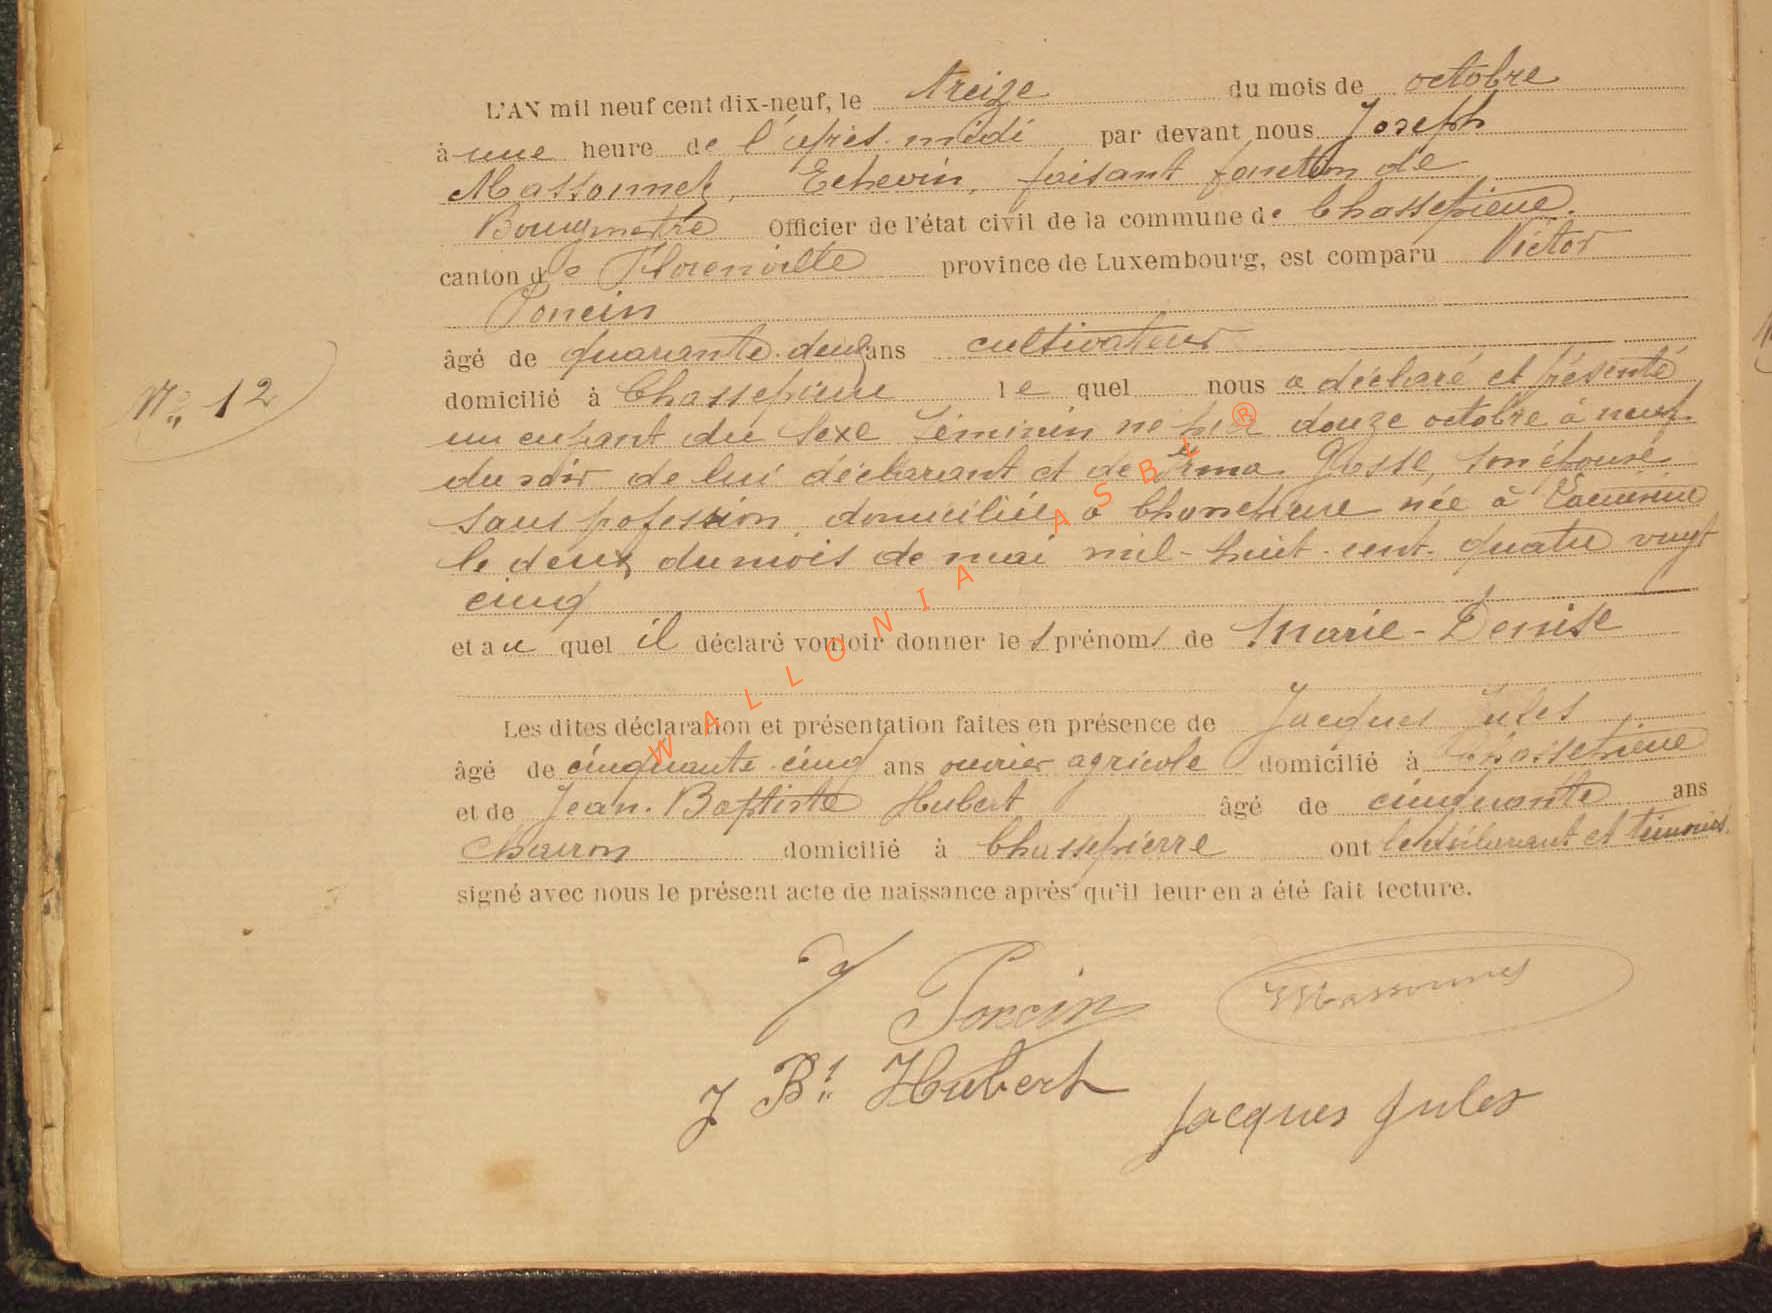 L'AN mil neuf cent dix-neuf, le treize du mois de octobre
à une heure de l'après-midi par devant nous Joseph
Massonnet, Echevin, faisant fonction de
Bourgmestre Officier de l'état civil de la commune de Chassepierre.
canton de Florenville province de Luxembourg, est comparu Victor
Poncin
âgé de quarante-deux ans cultivateur
N° 12
domicilié à Chassepierre lequel nous a déclaré et présenté
un enfant du sexe féminin né hier douze octobre à neuf
du soir de lui déclarant et de Irma Gosse, son épouse
sans profession, domiciliée à née à
le deux du mois de mai mil-huit-cent-quatre vingt
cinq
et au quel il déclaré vouloir donner les prénoms de Marie-Denise
Les dites déclaration et présentation faites en présence de Jacques Jules
âgé de cinquante-cinq ans ouvrier agricole domicilié à Chassepierre
et de Jean-Baptiste Hubert âgé de cinquante ans
Charron domicilié à Chassepierre ont le déclarant et témoins
signé avec nous le présent acte de naissance après qu'il leur en a été fait lecture.
V Poncin Massonnet
J Bt Hubert
Jacques Jules
WALLONIA ASBL ®